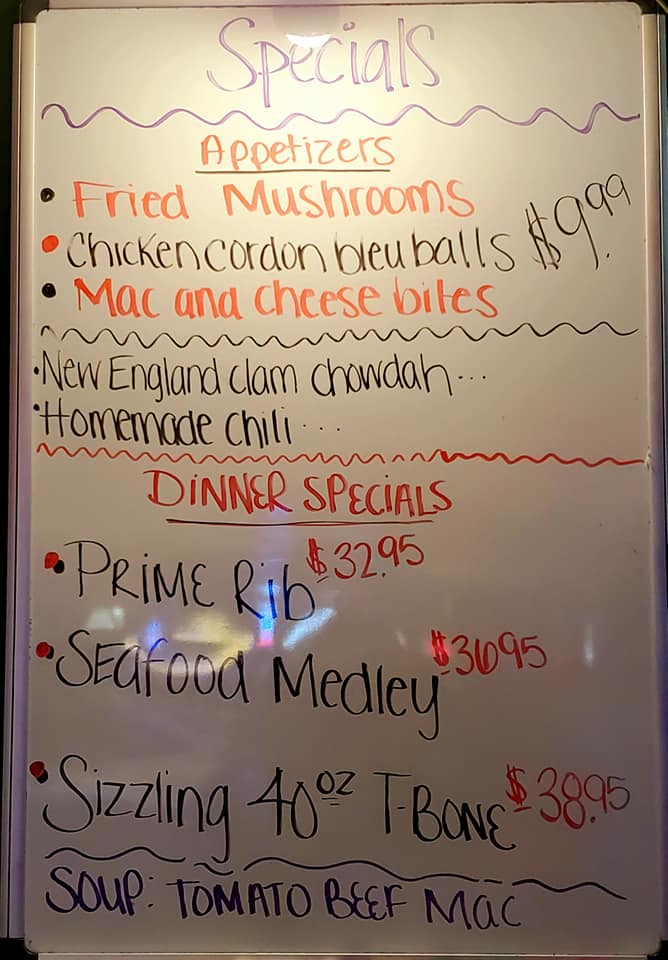 Specials
Appetizers
• Fried Mushrooms
• Chicken cordon bleu balls $9.99
• Mac and cheese bites
• New England clam chowdah...
• Homemade chili...
DINNER SPECIALS
• PRIME Rib $32.95
• SEafood Medley $36.95
• Sizzling 40oz T-BONE $38.95
SOUP: TOMATO BEEF Mac